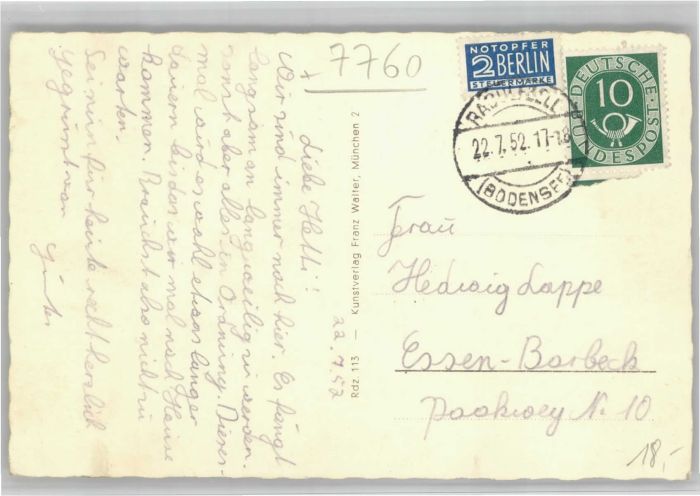 7760
NOTOPFER
2 BERLIN
STEUERMARKE
DEUTSCHE
10
BUNDESPOST
RADOLFZELL
22.7.52.17-18
(BODENSEE)
Liebe Hetti!
Wir sind immer noch hier. Es fängt
langsam an langweilig zu werden.
sonst aber alles in Ordnung. Dieses-
mal wird es wohl etwas länger
dauern bis das wir mal nach Hause
kommen. Brauchst also nicht zu
warten.
Sei nun für heute recht herzlich
gegrüsst von
Günter
22.7.52
Rdz. 113 — Kunstverlag Franz Walter, München 2
Frau
Hedwig Lappe
Essen-Borbeck
N. 10
18,-